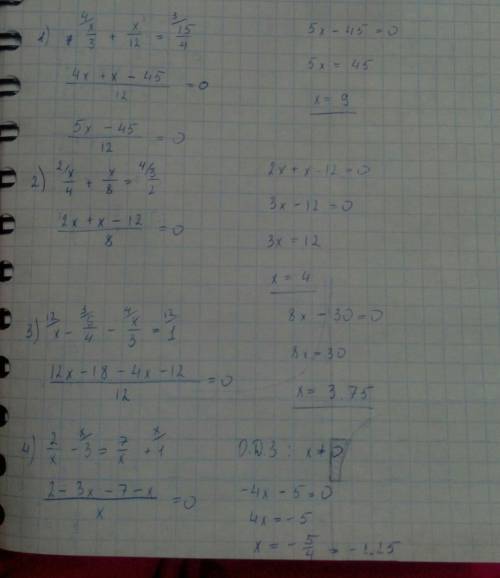 1) 4/ x/3 + x/12 = 3/ 15/4
(4x + x - 45)/12 = 0
(5x - 45)/12 = 0
5x - 45 = 0
5x = 45
x = 9
2) 2/ x/4 + x/8 = 4/ 3/2
(2x + x - 12)/8 = 0
2x + x - 12 = 0
3x - 12 = 0
3x = 12
x = 4
3) 12/ x - 3/ 6/4 - 4/ x/3 = 12/ 1
(12x - 18 - 4x - 12)/12 = 0
8x - 30 = 0
8x = 30
x = 3.75
4) 2/x - x/ 3 = 7/x + x/ 1
(2 - 3x - 7 - x)/x = 0
О.Д.З : x ≠ 0
-4x - 5 = 0
4x = -5
x = - 5/4 = -1.25